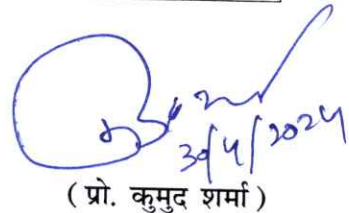 30/4/2024
( प्रो. कुमुद शर्मा )